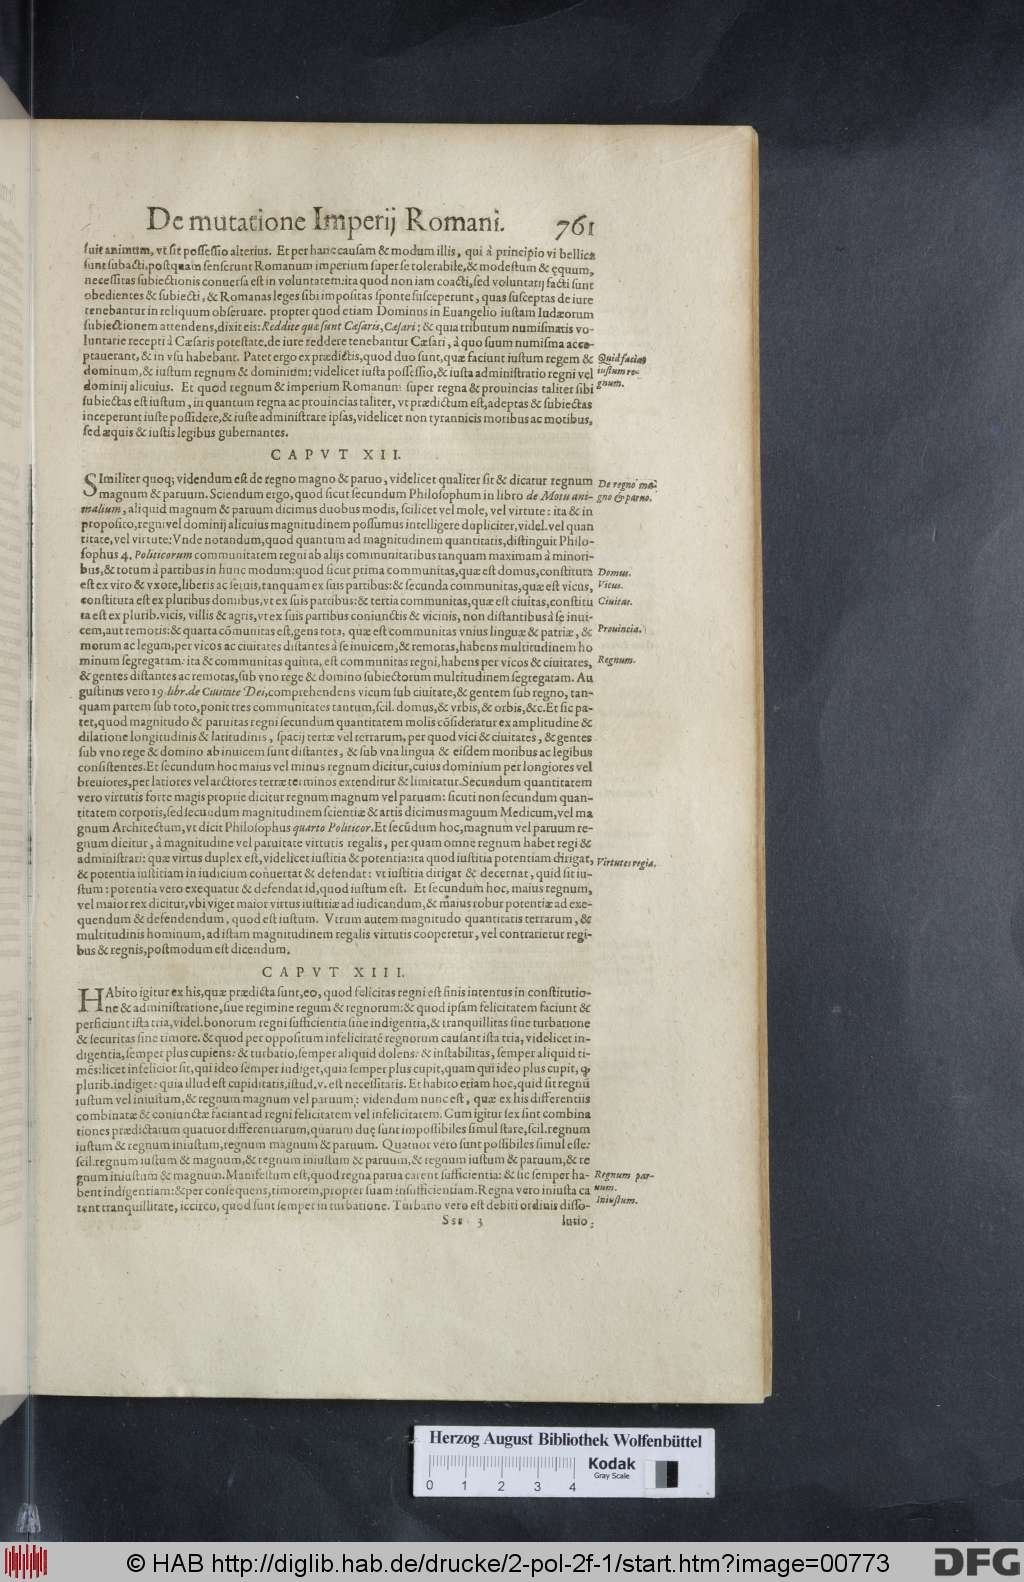 De mutatione Imperij Romani. 761
suit animum, vt sit possessio alterius. Et per hanc causam & modum illis, qui à principio vi bellica
sunt subacti, postquam senserunt Romanum imperium super se tolerabile, & modestum & ęquum,
necessitas subiectionis conuersa est in voluntatem: ita quod non iam coacti, sed voluntarij facti sunt
obedientes & subiecti, & Romanas leges sibi impositas sponte susceperunt, quas susceptas de iure
tenebantur in reliquum obseruare. propter quod etiam Dominus in Euangelio iustam Iudæorum
subiectionem attendens, dixit eis: Reddite quæ sunt Cæsaris, Cæsari; & quia tributum numismatis vo-
luntarie recepti à Cæsaris potestate, de iure reddere tenebantur Cæsari, à quo suum numisma acce-
ptauerant, & in vsu habebant. Patet ergo ex prædictis, quod duo sunt, quæ faciunt iustum regem &
Quid faciat
dominum, & iustum regnum & dominium: videlicet iusta possessio, & iusta administratio regni vel
iustum re-
dominij alicuius. Et quod regnum & imperium Romanum super regna & prouincias taliter sibi
gnum.
subiectas est iustum, in quantum regna ac prouincias taliter, vt prædictum est, adeptas & subiectas
inceperunt iuste possidere, & iuste administrare ipsas, videlicet non tyrannicis moribus ac motibus,
sed æquis & iustis legibus gubernantes.
CAPVT XII.
SImiliter quoq; videndum est de regno magno & paruo, videlicet qualiter sit & dicatur regnum
De regno ma-
magnum & paruum. Sciendum ergo, quod sicut secundum Philosophum in libro de Motu ani-
gno & paruo.
malium, aliquid magnum & paruum dicimus duobus modis, scilicet vel mole, vel virtute: ita & in
proposito, regni vel dominij alicuius magnitudinem possumus intelligere dupliciter, videl. vel quan
titate, vel virtute: Vnde notandum, quod quantum ad magnitudinem quantitatis, distinguit Philo-
sophus 4. Politicorum communitatem regni ab alijs communitatibus tanquam maximam à minori-
bus, & totum à partibus in hunc modum: quod sicut prima communitas, quæ est domus, constituta
Domus.
est ex viro & vxore, liberis ac seruis, tanquam ex suis partibus: & secunda communitas, quæ est vicus,
Vicus.
constituta est ex pluribus domibus, vt ex suis partibus: & tertia communitas, quæ est ciuitas, constitu
Ciuitas.
ta est ex plurib. vicis, villis & agris, vt ex suis partibus coniunctis & vicinis, non distantibus à se inui-
cem, aut remotis: & quarta cōmunitas est, gens tota, quæ est communitas vnius linguæ & patriæ, &
Prouincia.
morum ac legum, per vicos ac ciuitates distantes à se inuicem, & remotas, habens multitudinem ho
minum segregatam: ita & communitas quinta, est communitas regni, habens per vicos & ciuitates,
Regnum.
& gentes distantes ac remotas, sub vno rege & domino subiectorum multitudinem segregatam. Au
gustinus vero 19. libr. de Ciuitate Dei, comprehendens vicum sub ciuitate, & gentem sub regno, tan-
quam partem sub toto, ponit tres communitates tantum, scil. domus, & vrbis, & orbis, &c. Et sic pa-
tet, quod magnitudo & paruitas regni secundum quantitatem molis cōsideratur ex amplitudine &
dilatione longitudinis & latitudinis, spacij terræ vel terrarum, per quod vici & ciuitates, & gentes
sub vno rege & domino ab inuicem sunt distantes, & sub vna lingua & eisdem moribus ac legibus
consistentes. Et secundum hoc maius vel minus regnum dicitur, cuius dominium per longiores vel
breuiores, per latiores vel arctiores terræ terminos extenditur & limitatur. Secundum quantitatem
vero virtutis forte magis proprie dicitur regnum magnum vel paruum: sicuti non secundum quan-
titatem corporis, sed secundum magnitudinem scientiæ & artis dicimus magnum Medicum, vel ma
gnum Architectum, vt dicit Philosophus quarto Politicor. Et secūdum hoc, magnum vel paruum re-
gnum dicitur, à magnitudine vel paruitate virtutis regalis, per quam omne regnum habet regi &
administrari: quæ virtus duplex est, videlicet iustitia & potentia: ita quod iustitia potentiam dirigat,
Virtutes regiæ.
& potentia iustitiam in iudicium conuertat & defendat: vt iustitia dirigat & decernat, quid sit iu-
stum: potentia vero exequatur & defendat id, quod iustum est. Et secundum hoc, maius regnum,
vel maior rex dicitur, vbi viget maior virtus iustitiæ ad iudicandum, & maius robur potentiæ ad exe-
quendum & defendendum, quod est iustum. Vtrum autem magnitudo quantitatis terrarum, &
multitudinis hominum, ad istam magnitudinem regalis virtutis cooperetur, vel contrarietur regi-
bus & regnis, postmodum est dicendum.
CAPVT XIII.
HAbito igitur ex his, quæ prædicta sunt, eo, quod felicitas regni est finis intentus in constitutio-
ne & administratione, siue regimine regum & regnorum: & quod ipsam felicitatem faciunt &
perficiunt ista tria, videl. bonorum regni sufficientia sine indigentia, & tranquillitas sine turbatione
& securitas sine timore. & quod per oppositum infelicitatē regnorum causant ista tria, videlicet in-
digentia, semper plus cupiens: & turbatio, semper aliquid dolens: & instabilitas, semper aliquid ti-
mēs: licet infelicior sit, qui ideo semper indiget, quia semper plus cupit, quam qui ideo plus cupit, ꝙ
plurib. indiget: quia illud est cupiditatis, istud. v. est necessitatis. Et habito etiam hoc, quid sit regnū
iustum vel iniustum, & regnum magnum vel paruum: videndum nunc est, quæ ex his differentiis
combinatæ & coniunctæ faciant ad regni felicitatem vel infelicitatem. Cum igitur sex sint combina
tiones prædictarum quatuor differentiarum, quarum duę sunt impossibiles simul stare, scil. regnum
iustum & regnum iniustum, regnum magnum & paruum. Quatuor vero sunt possibiles simul esse:
scil. regnum iustum & magnum, & regnum iniustum & paruum, & regnum iustum & paruum, & re
gnum iniustum & magnum. Manifestum est, quod regna parua carent sufficientia: & sic semper ha-
Regnum par-
bent indigentiam: & per consequens, timorem, propter suam insufficientiam. Regna vero iniusta ca
uum.
rent tranquillitate, iccirco, quod sunt semper in turbatione. Turbatio vero est debiti ordinis disso-
Iniustum.
Sss 3 lutio:
Herzog August Bibliothek Wolfenbüttel
0 1 2 3 4
Kodak
Gray Scale
© HAB http://diglib.hab.de/drucke/2-pol-2f-1/start.htm?image=00773
DFG